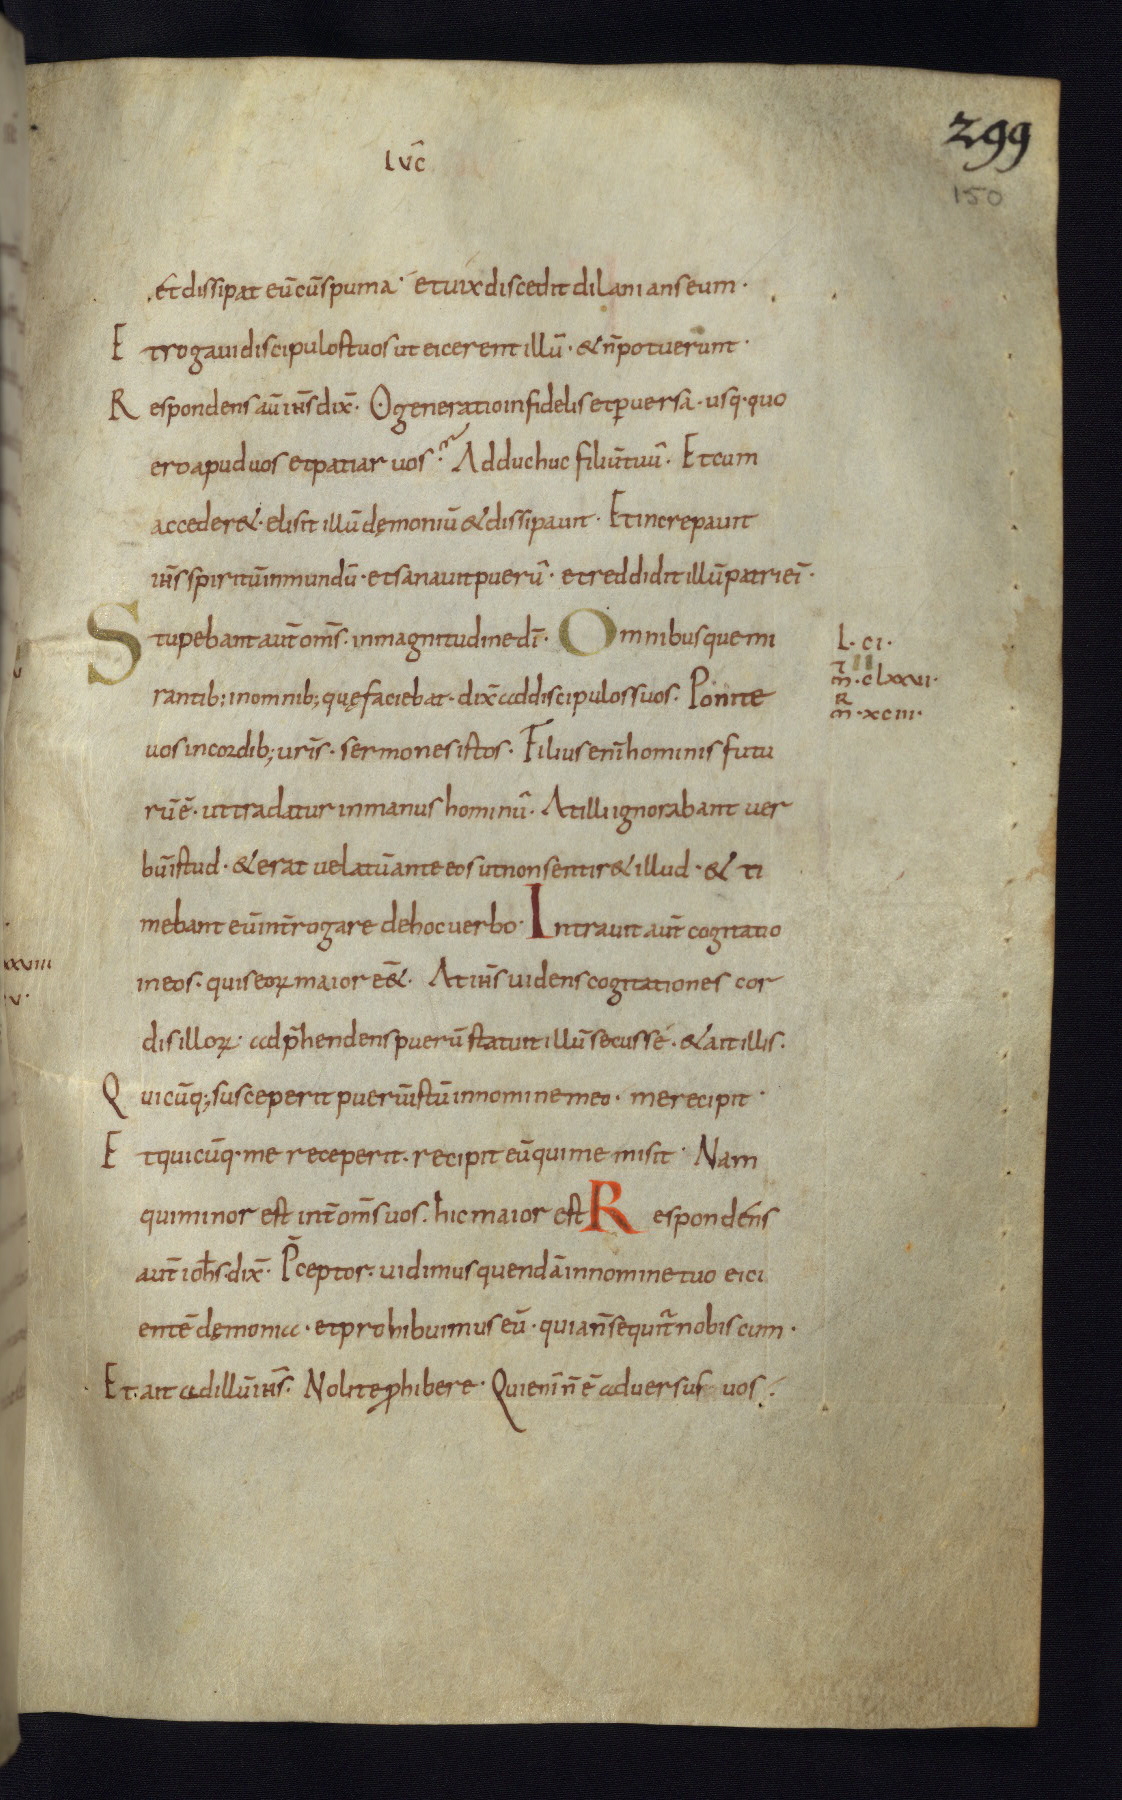 LVC̄
299
150
Et dissipat eū cū spuma · et uix discedit dilanians eum ·
Et rogaui discipulos tuos ut eicerent illū · & n̄ potuerunt ·
Respondens aū ih̄s dix̄ · O generatio infidelis et puersa · usq · quo
ero apud uos et patiar uos · Adduc huc filiū tuū · Et cum
acceder& · elisit illū dęmoniū & dissipauit · Et increpauit
ih̄s spiritū inmundū · et sanauit puerū · et reddidit illū patri ei ·
Stupebant aut̄ om̄s · in magnitudine dī · Omnibusque mi
rantib; in omnib; quę faciebat · dix̄ ad discipulos suos · Ponite
uos in cordib; uris̄ · sermones istos · Filius eni hominis futu
rū ē · ut tradatur in manus hominū · At illi ignorabant uer
bū istud · & erat uelatū ante eos ut non sentir& illud · & ti
mebant eū int̄rogare de hoc uerbo · Intrauit aut̄ cogitatio
in eos · quis eoꝝ maior eē& · At ih̄s uidens cogitationes cor
dis illoꝝ · adp̄hendens puerū statuit illū secus sé · & ait illis ·
Quicūq; susceperit puerū istū in nomine meo · me recipit ·
Et quicūq · me receperit · recipit eū qui me misit · Nam
qui minor est int̄ om̄s uos · hic maior est Respondens
aut̄ ioh̄s · dix̄ · P̄ceptor · uidimus quendā in nomine tuo eici
entē dęmonia · et prohibuimus eū · quia n̄ sequit̄ nobiscum ·
Et · ait ad illū ih̄s · Nolite ꝓhibere · Qui eni n̄ ē aduersus uos ·
L · CI ·
m̄ · clxxvi ·
R
m̄ · xciii ·
xxviii
v ·